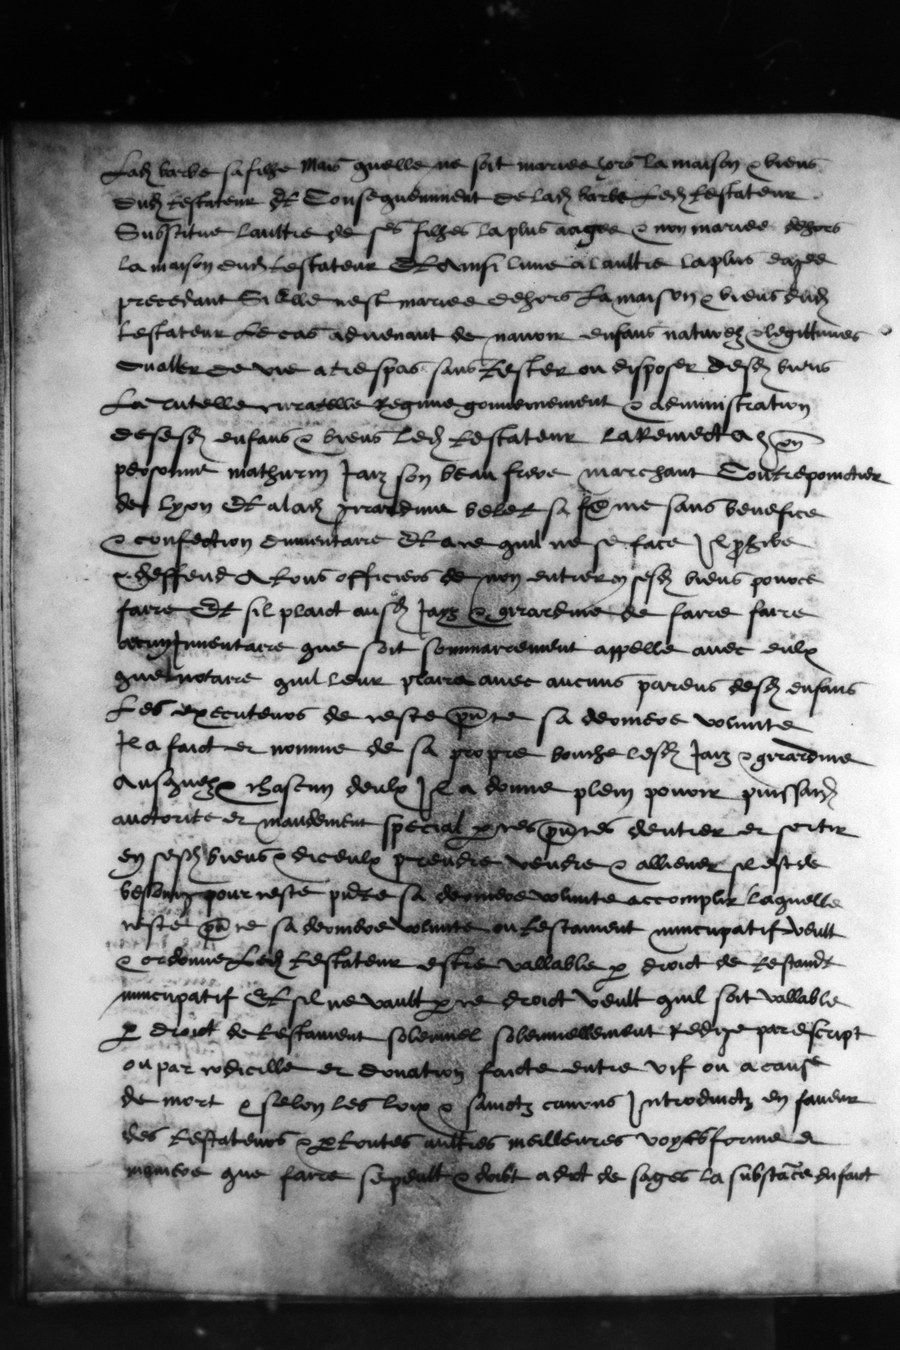 Lad barbe sa fille Mais quelle ne soit mariee hors la maison & biens
Dud testateur Et Consequemment de lad barbe Led testateur
Substitue laultre de ses filhes la plus aagee & non mariee dehors
la maison dud testateur Et ainsi lune a laultre la plus eagee
precedant Si Elle nest mariee dehors La maison & biens dud
testateur Le cas advenant de navoir enfans naturelz & legittimes
Ou aller de vie a trespas sans tester ou disposer desd biens
La tutelle curatelle Regime gouvernement & administration
de sesd enfans & biens led testateur La Remect a
personne mathurin Jaiz son beau frere marchant Contrepoinctier
de lyon Et a lad girardine belet sa feme sans benefice
& confection dinventaire Et a ce quil ne se face Il
& deffend A tous officiers de non entrer en sesd biens pour ce
faire Et sil plaict ausd Jaiz & girardine de faire faire
Inventaire que soit sommairement appelle avec eulx
quel notaire quil leur plaira avec aucuns parens desd enfans
Les executeurs de ceste pnte sa derniere volunte
Il a faict et nomme de sa propre bouche lesd Jaiz & girardine
Ausquelz & chascun deulx Il a donne plein povoir puissance
auctorite et mandement special p ces pntes dentrer et sortir
en sesd biens & diceulx prendre vendre & alliener sil est de
besoing pour ceste pnte sa derniere volunte accomplir Laquelle
ceste pnte sa derniere volunte ou testament nuncupatif veult
& ordonne Led testateur estre vallable p droict de testamt
nuncupatif Et sil ne vault p ce droict veult quil soit vallable
p droict de testament solennel solennellement Redige par escript
ou par codicille et donation faicte entre vif ou a cause
de mort & selon les loix & sainctz canons Introduictz en faveur
des testateurs & p toutes aultres meilleures voyes forme &
maniere que faire se peult & doibt a dict de sages la substace du faict